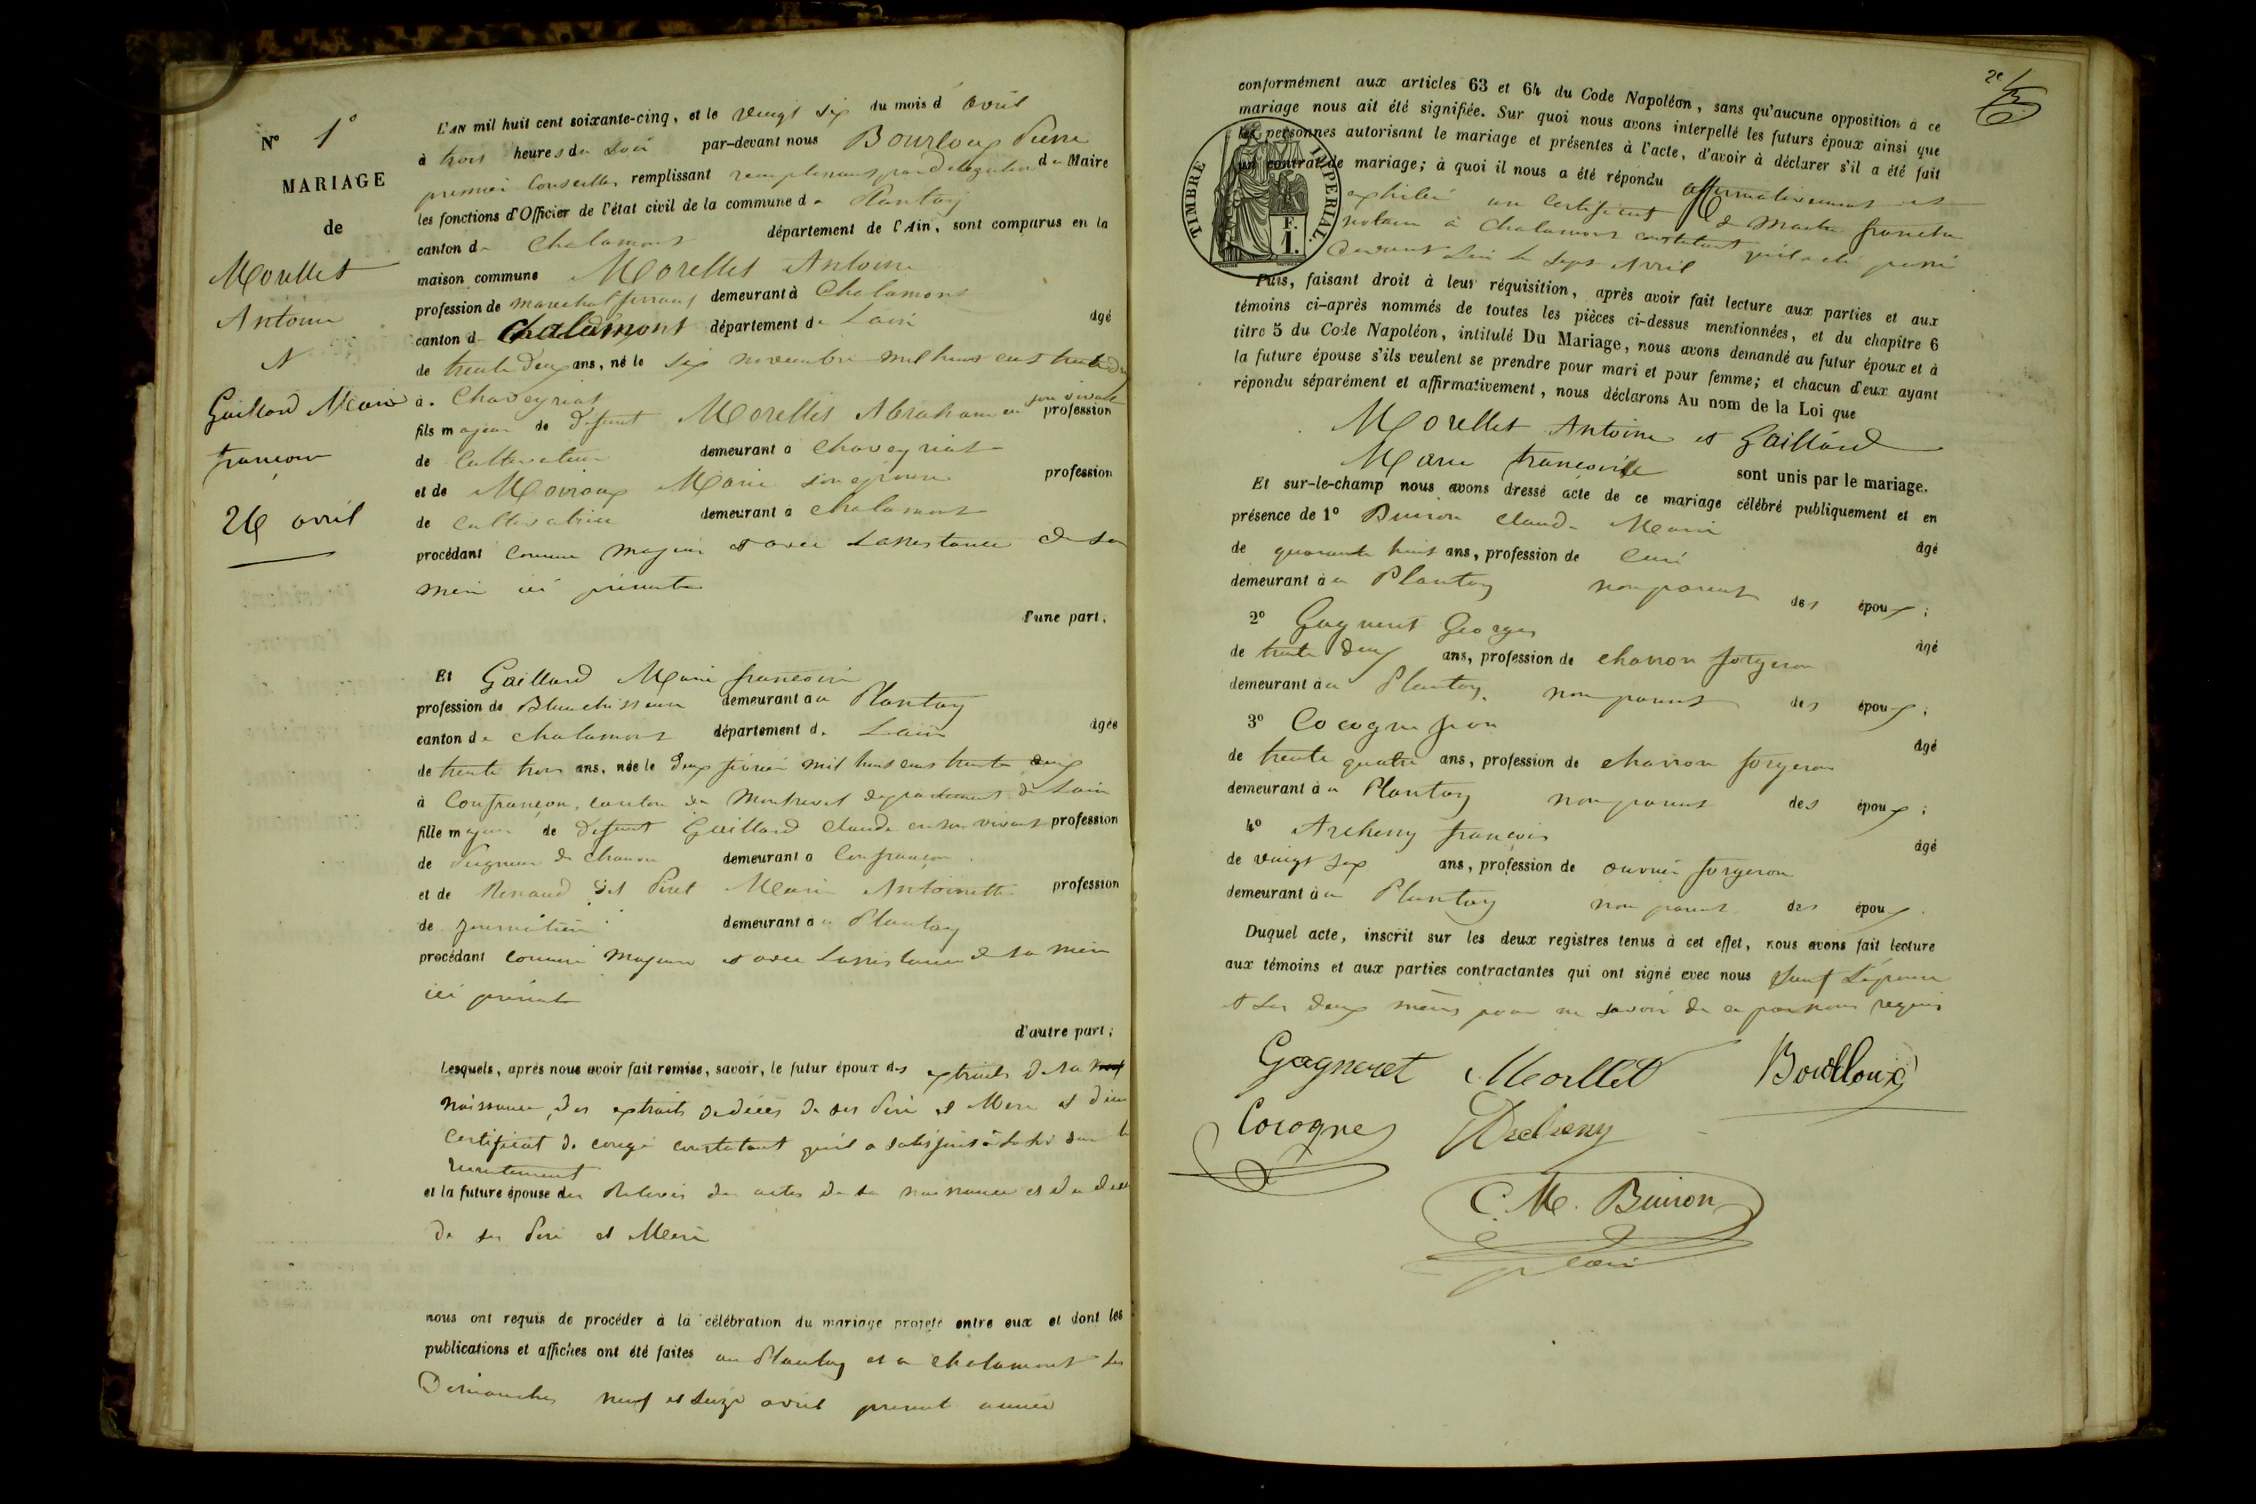 N° 1°
MARIAGE
de
Morellet
Antoine
et
Gaillard Marie
françoise
26 avril
L'AN mil huit cent soixante-cinq, et le vingt six du mois d'avril
à trois heures du soir par-devant nous Bourloux Pierre
premier Conseiller remplissant par délégation du Maire
les fonctions d'Officier de l'état civil de la commune du Plantay
canton de Chalamont département de l'Ain, sont comparus en la
maison commune Morellet Antoine
profession de marechal ferrant demeurant à Chalamont
canton de Chalamont département de Lain âgé
de trente deux ans, né le six novembre mil huit cent trente deux
à Chaveyriat
fils majeur de defunt Morellet Abraham en son vivant profession
de Cultivateur demeurant à Chaveyriat
et de Marie son épouse profession
de Cultivatrice demeurant à Chalamont
procédant comme majeur et avec Lassistance de sa
mère ici présente
d'une part,
Et Gaillard Marie françoise
profession de Blanchisseuse demeurant au Plantay
canton de Chalamont département de Lain âgée
de trente trois ans, née le deux février mil huit cent trente deux
à Confrançon, canton de Montrevel département de Lain
fille majeure de defunt Gaillard Claude en son vivant profession
de Peigneur de chanvre demeurant à Confrançon
et de Renaud dit Piret Marie Antoinette profession
de journalière demeurant au Plantay
procédant comme majeure et avec Lassistance de sa mère
ici présente
d'autre part;
Lesquels, après nous avoir fait remise, savoir, le futur époux des extraits de sa
naissance, des extraits de décès de ses Père et Mère et d'un
certificat de congé constatant qu'il a satisfait à la loi sur le
recrutement
et la future épouse des Relevés des actes de sa naissance et du décès
de ses Père et Mère
nous ont requis de procéder à la célébration du mariage projeté entre eux et dont les
publications et affiches ont été faites au Plantay et à Chalamont les
Dimanches neuf et seize avril présente année
2e
conformément aux articles 63 et 64 du Code Napoléon, sans qu'aucune opposition à ce
mariage nous ait été signifiée. Sur quoi nous avons interpellé les futurs époux ainsi que
les personnes autorisant le mariage et présentes à l'acte, d'avoir à déclarer s'il a été fait
un contrat de mariage; à quoi il nous a été répondu affirmativement et
exhibé un certificat de Maitre
notaire à Chalamont constatant qu'il a été passé
devant lui le sept Avril
TIMBRE IMPÉRIAL.
F.
1.
Puis, faisant droit à leur réquisition, après avoir fait lecture aux parties et aux
témoins ci-après nommés de toutes les pièces ci-dessus mentionnées, et du chapitre 6
titre 5 du Code Napoléon, intitulé Du Mariage, nous avons demandé au futur époux et à
la future épouse s'ils veulent se prendre pour mari et pour femme; et chacun d'eux ayant
répondu séparément et affirmativement, nous déclarons Au nom de la Loi que
Morellet Antoine et Gaillard
Marie françoise sont unis par le mariage.
Et sur-le-champ nous avons dressé acte de ce mariage célébré publiquement et en
présence de 1° Buiron Claude Marie âgé
de quarante huit ans, profession de Curé
demeurant au Plantay non parent des époux;
2° Gagneret Georges âgé
de trente deux ans, profession de charron forgeron
demeurant au Plantay non parent des époux;
3° Cocogne Jean âgé
de trente quatre ans, profession de charron forgeron
demeurant au Plantay non parent des époux;
4° Archeny françois âgé
de vingt six ans, profession de ouvrier forgeron
demeurant au Plantay non parent des époux.
Duquel acte, inscrit sur les deux registres tenus à cet effet, nous avons fait lecture
aux témoins et aux parties contractantes qui ont signé avec nous Sauf L'épouse
et les deux mères pour ne savoir de ce par nous requis
Gagneret Morellet Bourloux
Cocogne Archeny
C. M. Buiron